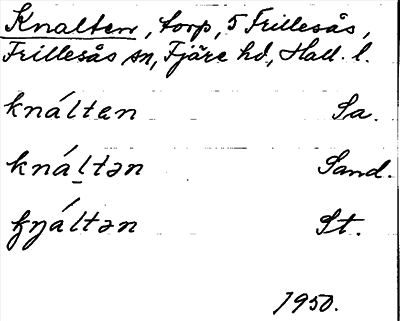 Knalten, torp, 5 Frillesås,
Frillesås sn, Fjäre hd., Hall. l.
knáltan Sa.
knáltən Sand.
kŋáltən St.
1950.